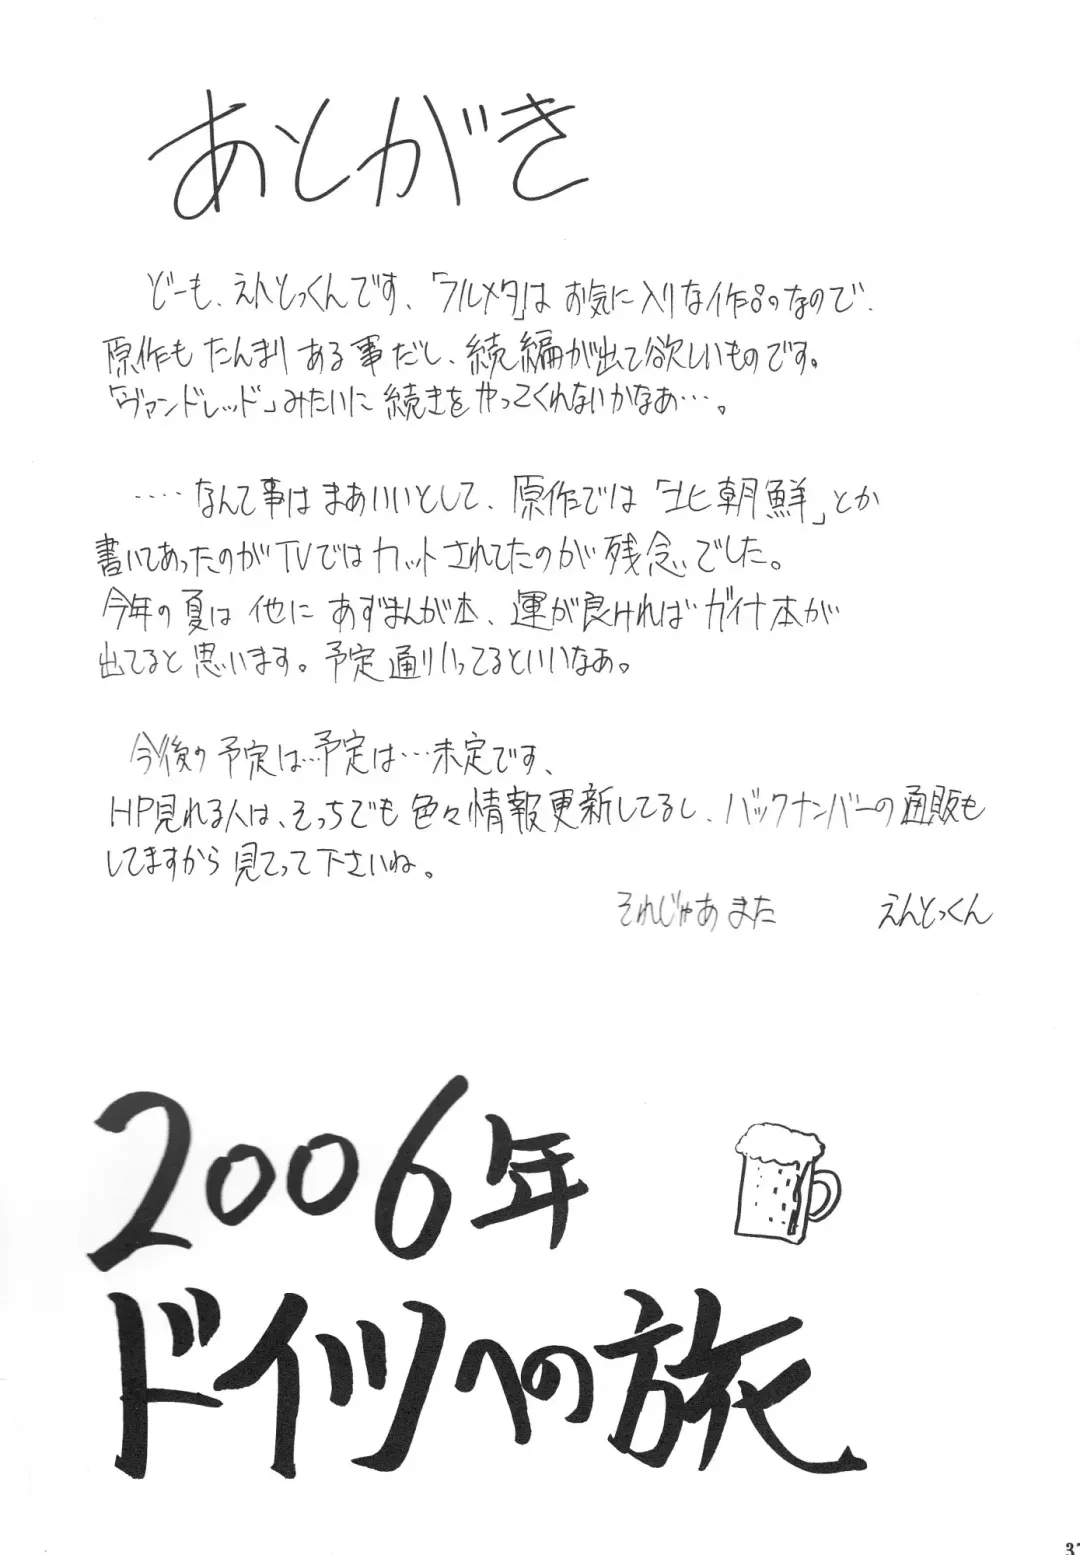 あとがき
どーも、えんとっくんです、「フルメタ」は お気に入りな作品のなので、
原作も たんまり ある事だし、続編が出て欲しいものです。
「ヴァンドレッド」みたいに 続きを やってくれないかなあ…。
‥‥なんて事は まあいいとして、原作では「北朝鮮」とか
書いてあったのが TVでは カットされてたのが 残念でした。
今年の 夏は 他に あずまんが本、運が良ければ ガイナ本が
出てると 思います。予定通りいってるといいなあ。
今後の 予定は‥予定は…未定です、
HP見れる人は、そっちでも 色々情報更新してるし、バックナンバーの通販も
してますから 見てって 下さいね。
それじゃあ また えんとっくん
2006年
ドイツへの旅
37